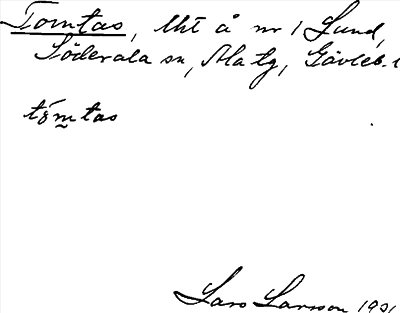 Tomtas, lht å nr 1 Lund,
Söderala sn, Ala tg, Gävleb. l
tómtas
Lars Larsson 1921